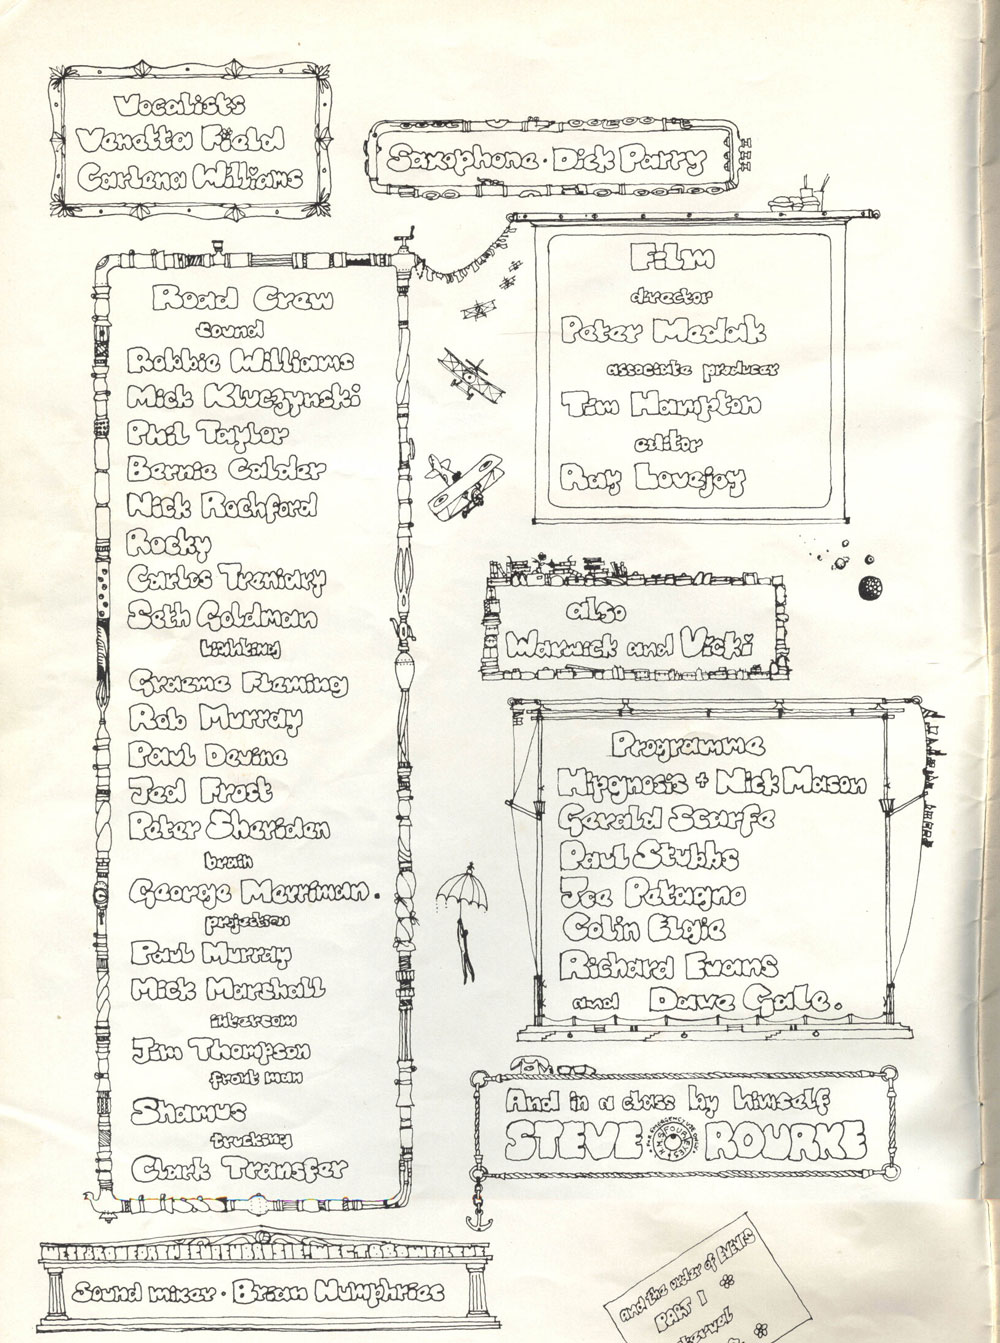 Vocalists
Venetta Field
Carlena Williams
Saxophone · Dick Parry
Road Crew
sound
Robbie Williams
Mick Kluczynski
Phil Taylor
Bernie Calder
Nick Rochford
Rocky
Carlos Trenidry
Seth Goldman
lighting
Graeme Fleming
Rob Murray
Paul Devine
Jed Frost
Peter Sheriden
brain
George Merriman.
projection
Paul Murray
Mick Marshall
intercom
Jim Thompson
front man
Shamus
trucking
Clark Transfer
Film
director
Peter Medak
associate producer
Tim Hampton
editor
Ray Lovejoy
also
Warwick and Vicki
Programme
Hipgnosis + Nick Mason
Gerald Scarfe
Paul Stubbs
Joe Petagno
Colin Elgie
Richard Evans
and Dave Gale.
And in a class by himself
STEVE O'ROURKE
Sound mixer · Brian Humphries
and the order of EVENTS
PART I